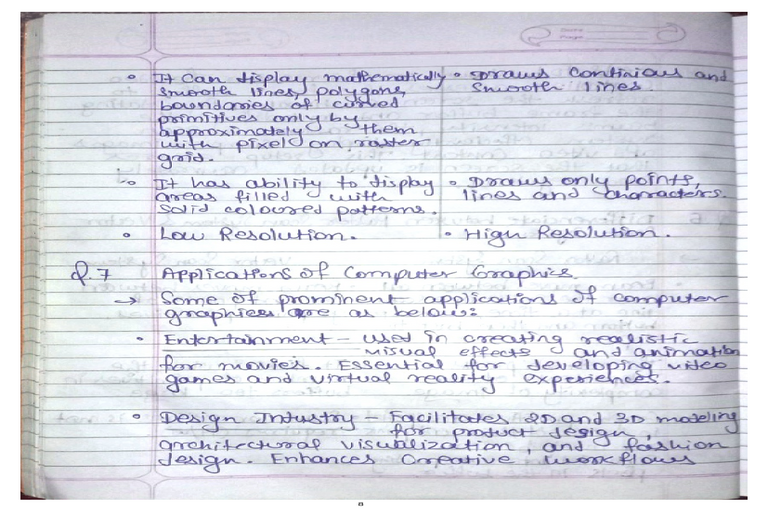 • It can display mathematically • Draws Continious and
smooth lines, polygons, smooth lines.
boundaries of curved
primitives only by
approximately them
with pixel on raster
grid.
• It has ability to display • Draws only points,
areas filled with lines and characters.
solid coloured patterns.
• Low Resolution. • High Resolution.
Q.7 Applications of Computer Graphics.
→ Some of prominent applications of computer
graphics are as below:
• Entertainment - used in creating realistic
visual effects and animation
for movies. Essential for developing video
games and virtual reality experiences.
• Design Industry - Facilitates 2D and 3D modeling
for product design,
architectural visualization, and fashion
design. Enhances Creative workflows